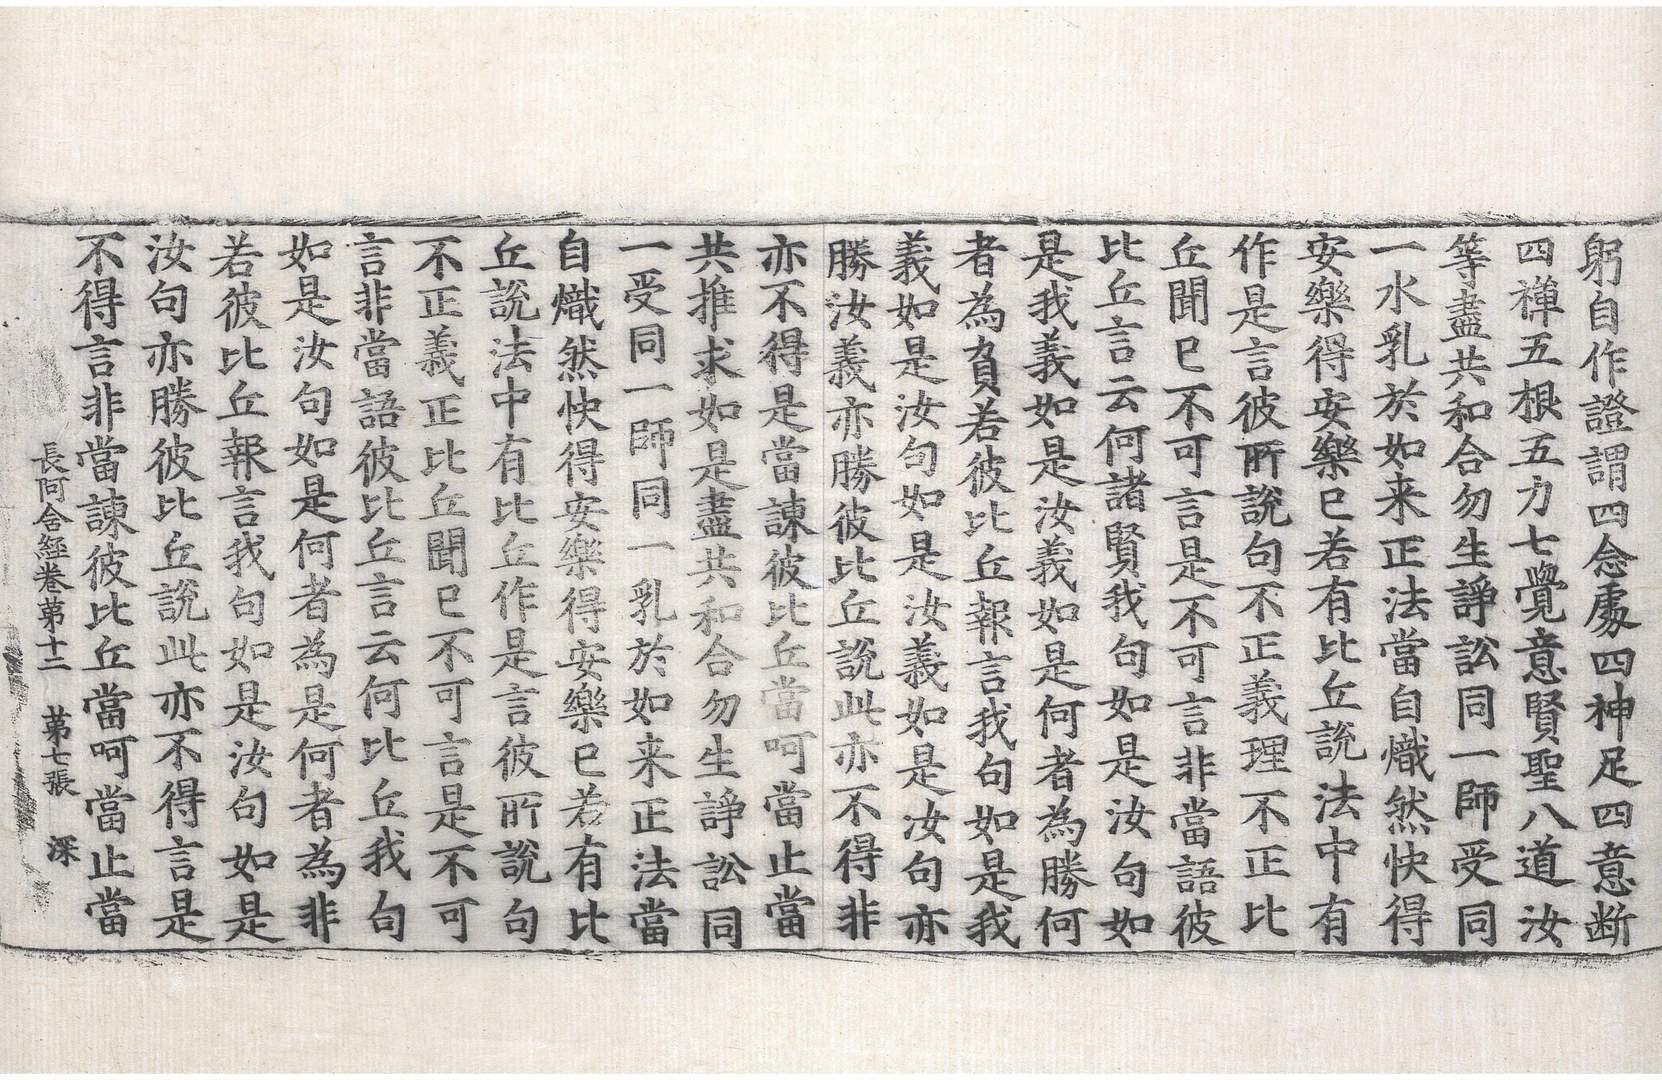 躬自作證謂四念處四神足四意断
四禅五根五力七覺意賢聖八道汝
等盡共和合勿生諍訟同一師受同
一水乳於如来正法當自熾然快得
安樂得安樂已若有比丘說法中有
作是言彼所說句不正義理不正比
丘聞已不可言是不可言非當語彼
比丘言云何諸賢我句如是汝句如
是我義如是汝義如是何者為勝何
者為負若彼比丘報言我句如是我
義如是汝句如是汝義如是汝句亦
勝汝義亦勝彼比丘說此亦不得非
亦不得是當諫彼比丘當呵當止當
共推求如是盡共和合勿生諍訟同
一受同一師同一乳於如来正法當
自熾然快得安樂得安樂已若有比
丘說法中有比丘作是言彼所說句
不正義正比丘聞已不可言是不可
言非當語彼比丘言云何比丘我句
如是汝句如是何者為是何者為非
若彼比丘報言我句如是汝句如是
汝句亦勝彼比丘說此亦不得言是
不得言非當諫彼比丘當呵當止當
長阿含經卷第十二 第七張 深